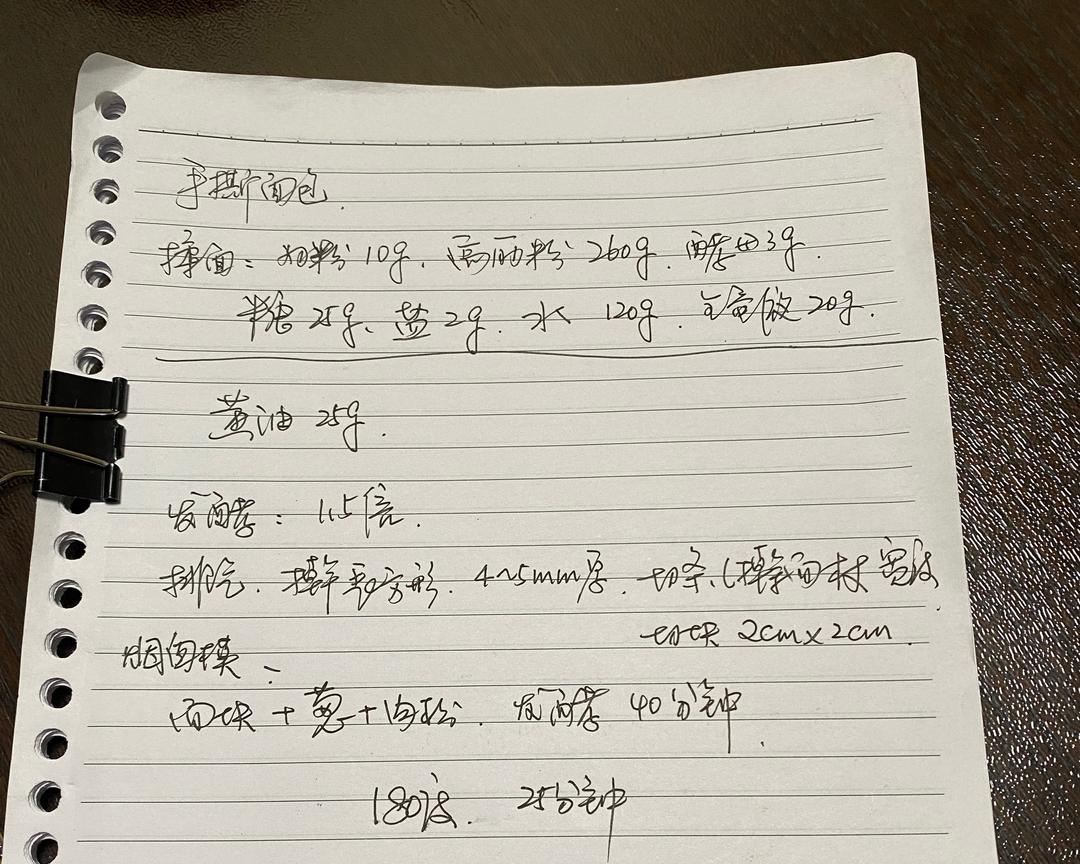 手撕面包.
揉面: 奶粉 10g. 高筋粉 260g. 酵母3g.
糖 25g、盐 2g. 水 120g. 全蛋液 20g.
黄油 25g.
发酵: 1.5倍.
排气. 擀到方形. 4~5mm厚. 切条、(擀面杖宽度
切块 2cm×2cm.
烟囱模:
面块+葱+肉松. 发酵 40分钟.
180度. 25分钟